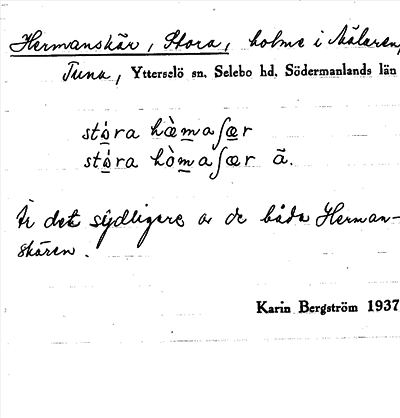 Hermanskär, Stora, holme i Mälaren,
Tuna, Ytterselö sn, Selebo hd, Södermanlands län
stòra hæ̀maʃær
stòra hòmaʃær ã.
Är det sydligare av de båda Herman-
skären.
Karin Bergström 1937